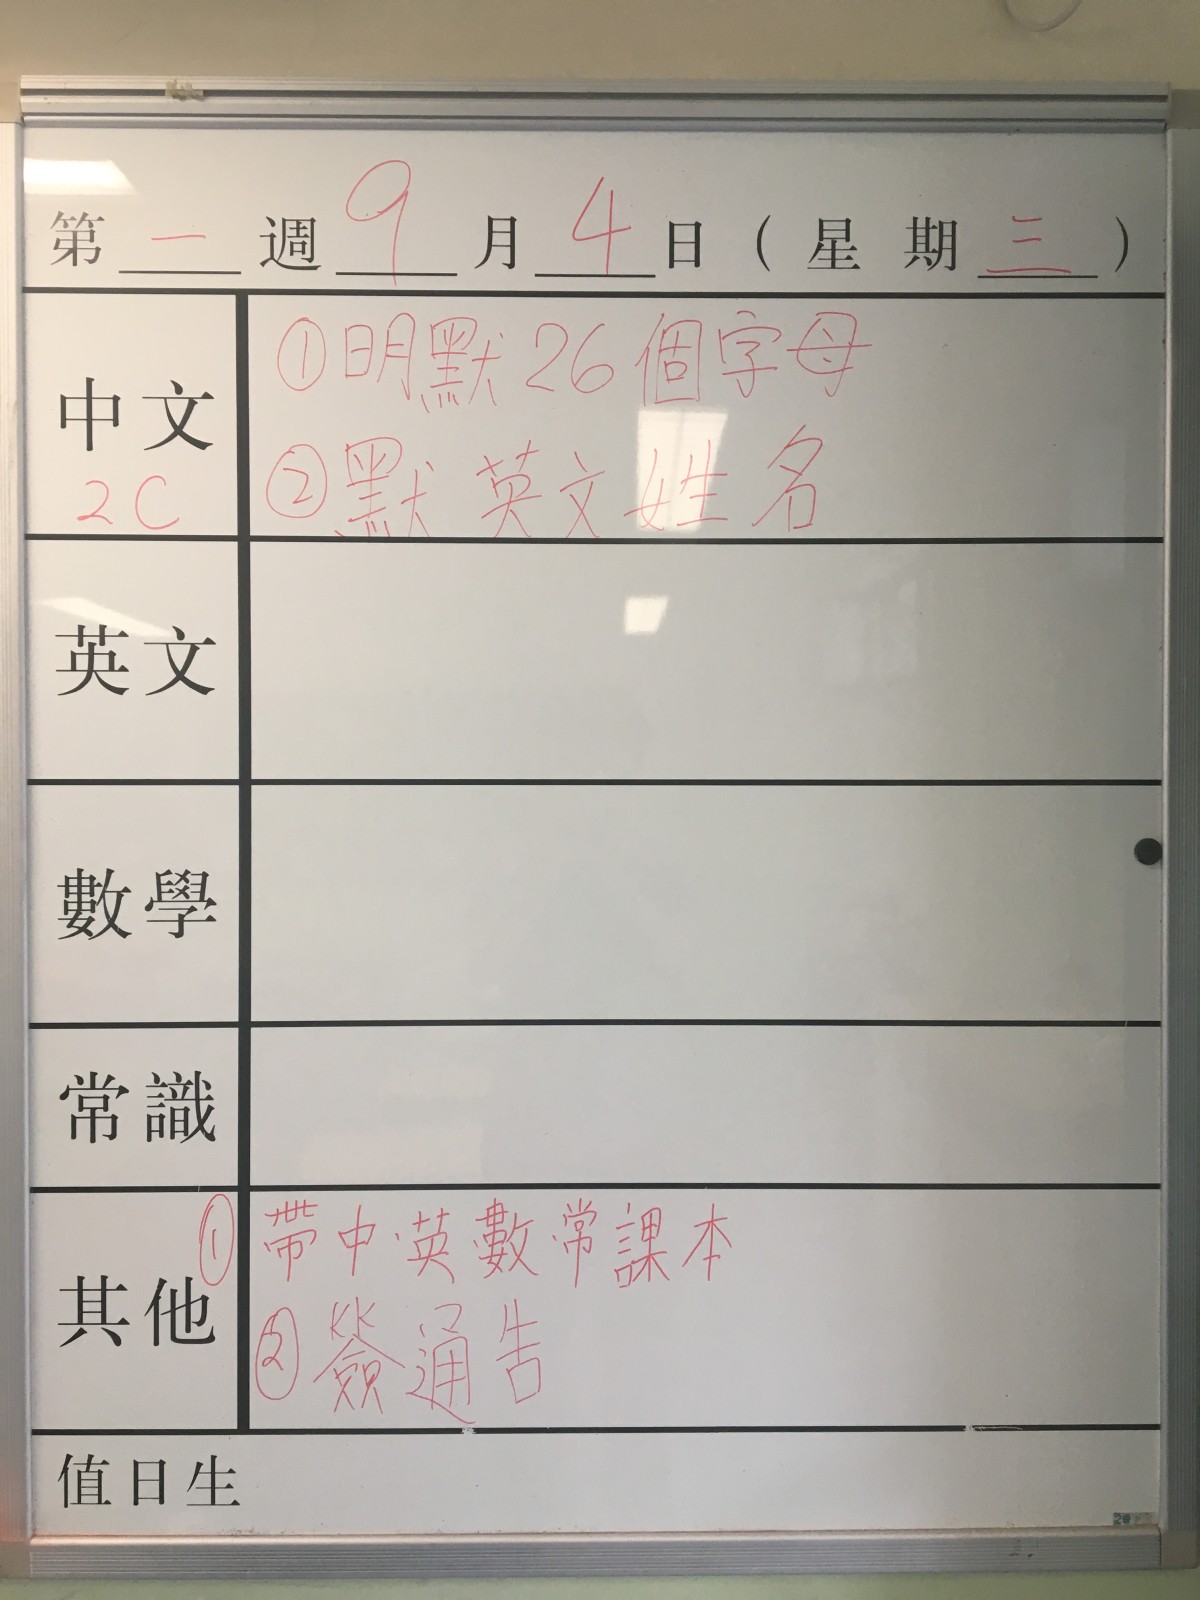 第一週9月4日(星期三)
中文
2C
①明默26個字母
②默英文姓名
英文
數學
常識
其他
①帶中英數常課本
②簽通告
值日生